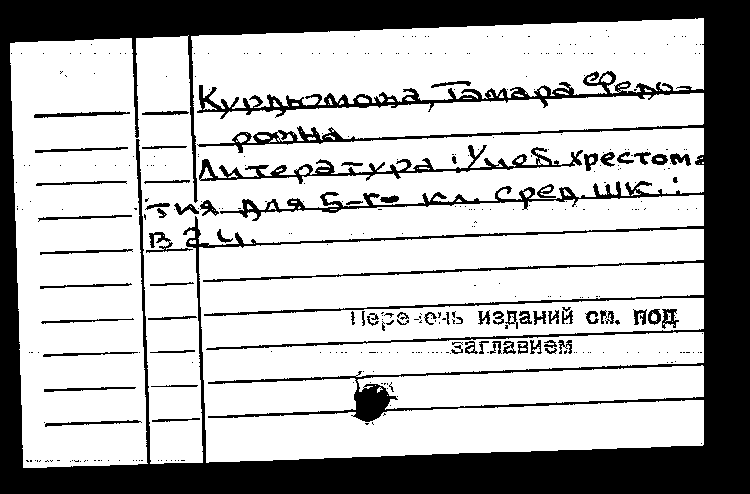 Курдюмова, Тамара Федо-
ровна.
Литература : Учеб. хрестома
тия для 5-го кл. сред. шк. :
В 2 ч.
Перечень изданий см. под
заглавием